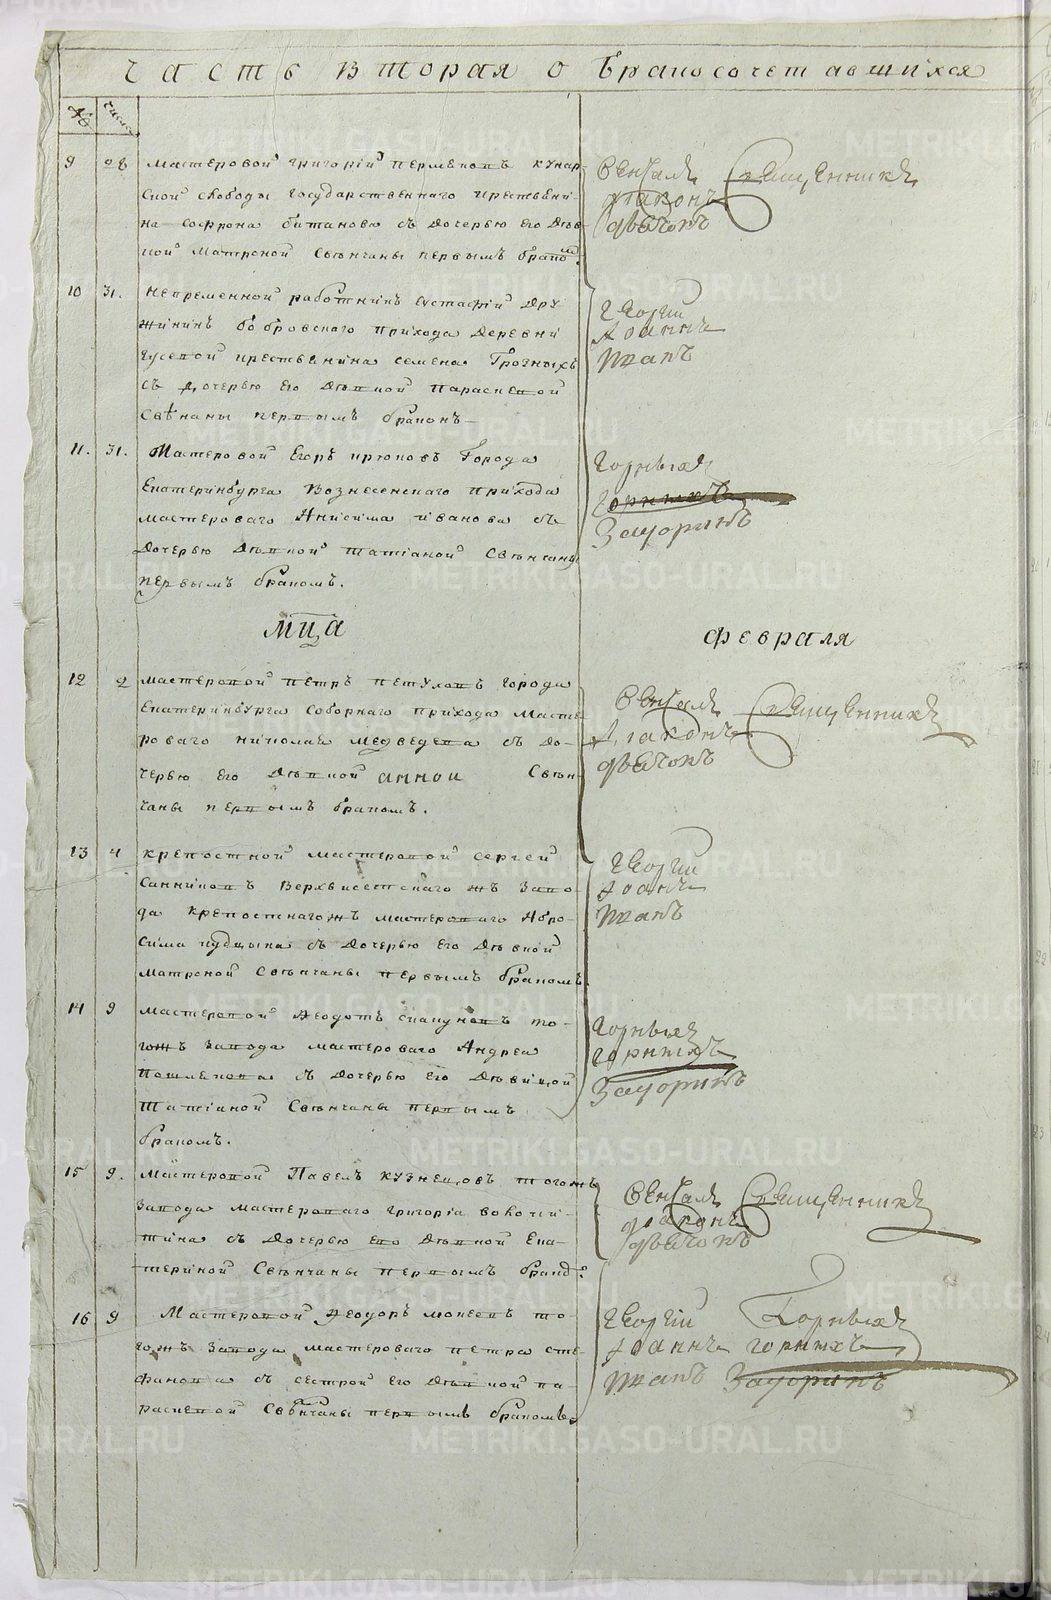 Часть вторая о бракосочетавшихся
№ числа
9 28 мастеровой григорій перменовъ кунар-
ской слободы государственнаго крестьяни-
на софрона битанова съ дочерью его дѣв-
кой матроной свѣнчаны первымъ бракомъ.
Вѣнчалъ Священникъ
діаконъ
дьячокъ
10 31. непременной работникъ евстафій дру
жининъ бобровскаго прихода деревни
гусевой крестьянина семена Грозныхъ
съ дочерью его дѣвкой параскевой
Свѣнчаны первымъ бракомъ
Георгій
Іоаннъ
11. 31. Мастеровой Егоръ крюковъ Города
Екатеринбурга Вознесенскаго прихода
мастероваго Анисима иванова съ
дочерью дѣвкой татіаной Свѣнчаны
первымъ бракомъ.
Горныхъ
горныхъ
Мца Февраля
12 2 мастеровой петръ петуховъ города
екатеринбурга соборнаго прихода масте-
роваго николая медведева съ до-
черью его дѣвкой анной Свѣн-
чаны первымъ бракомъ.
Вѣнчалъ Священникъ
діаконъ
дьячокъ
13 4 крепостной мастеровой сергей
санниковъ Верхъисетскагожъ заво-
да крепостнагожъ мастероваго Абро-
сима кудцына съ дочерью его дѣвкой
матроной Свѣнчаны первымъ бракомъ
Георгій
Іоаннъ
14 9 мастеровой Ѳеодотъ скакуновъ то-
гожъ завода мастероваго Андрея
пошлякова съ дочерью его дѣвицой
татіаной Свѣнчаны первымъ
бракомъ.
Горныхъ
горныхъ
15 9. мастеровой Павелъ кузнецовъ тогожъ
завода мастероваго григорія
съ дочерью его дѣвкой Ека-
териной Свѣнчаны первымъ бракомъ
Вѣнчалъ Священникъ
діаконъ
дьячокъ
16 9 Мастеровой Ѳеодоръ то-
гожъ завода мастероваго петра сте-
фанова съ сестрой его дѣвкой па-
раскевой Свѣнчаны первымъ бракомъ
Георгій Горныхъ
Іоаннъ горныхъ
METRIKI.GASO-URAL.RU